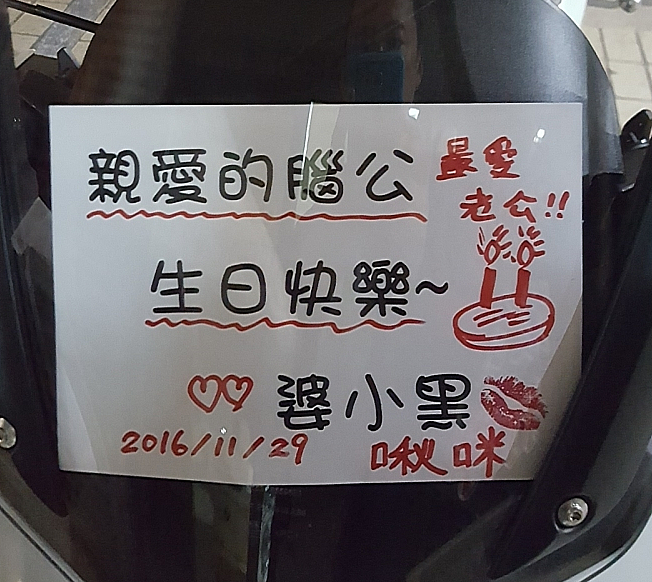 親愛的腦公
最愛
老公!!
生日快樂~
♡♡ 婆小黑
2016/11/29
啾咪